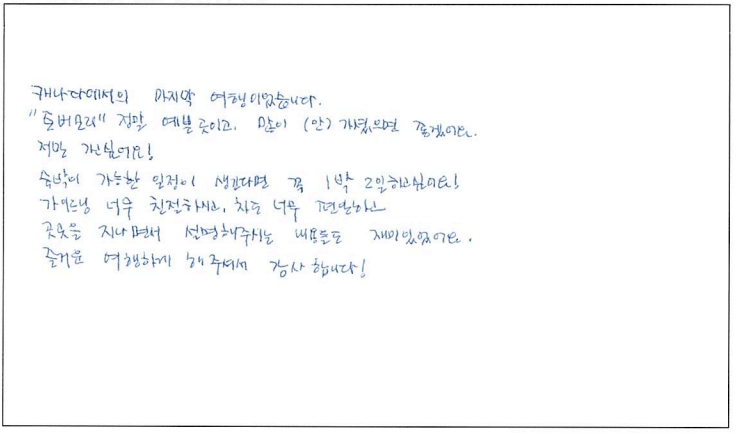 캐나다에서의 마지막 여행이었습니다.
"토버모리" 정말 예쁜 곳이고, 많이 (안) 가셨으면 좋겠어요.
저만 가고싶어요!
숙박이 가능한 일정이 생긴다면 꼭 1박 2일하고싶어요!
가이드님 너무 친절하시고, 차도 너무 편안하고
곳곳을 지나면서 설명해주시는 내용들도 재미있었어요.
즐거운 여행하게 해주셔서 감사합니다!